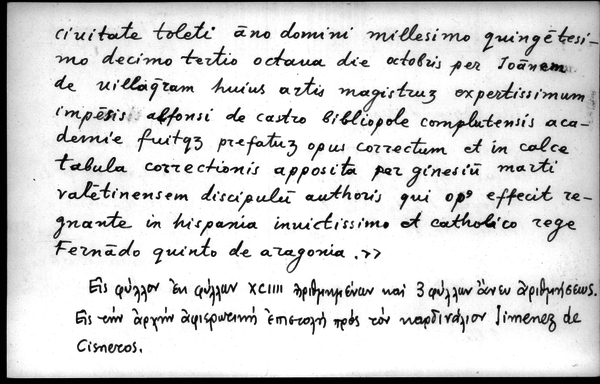 ciuitate toleti āno domini millesimo quingētesi-
mo decimo tertio octaua die octobris per Joānem
de uillagram huius artis magistruʒ expertissimum
impēsis alfonsi de castro bibliopole complutensis aca-
demie fuitqʒ prefatuʒ opus correctum et in calce
tabula correctionis apposita per ginesiū marti
valētinensem discipulū authoris qui opꝰ effecit re-
gnante in hispania inuictissimo et catholico rege
Fernādo quinto de aragonia .»
Εἰς φύλλον ἐκ φύλλων XCIIII ἀριθμημένων καὶ 3 φύλλων ἄνευ ἀριθμήσεως.
Εἰς τὴν ἀρχὴν ἀφιερωτικὴ ἐπιστολὴ πρὸς τὸν καρδινάλιον Jimenez de
Cisneros.